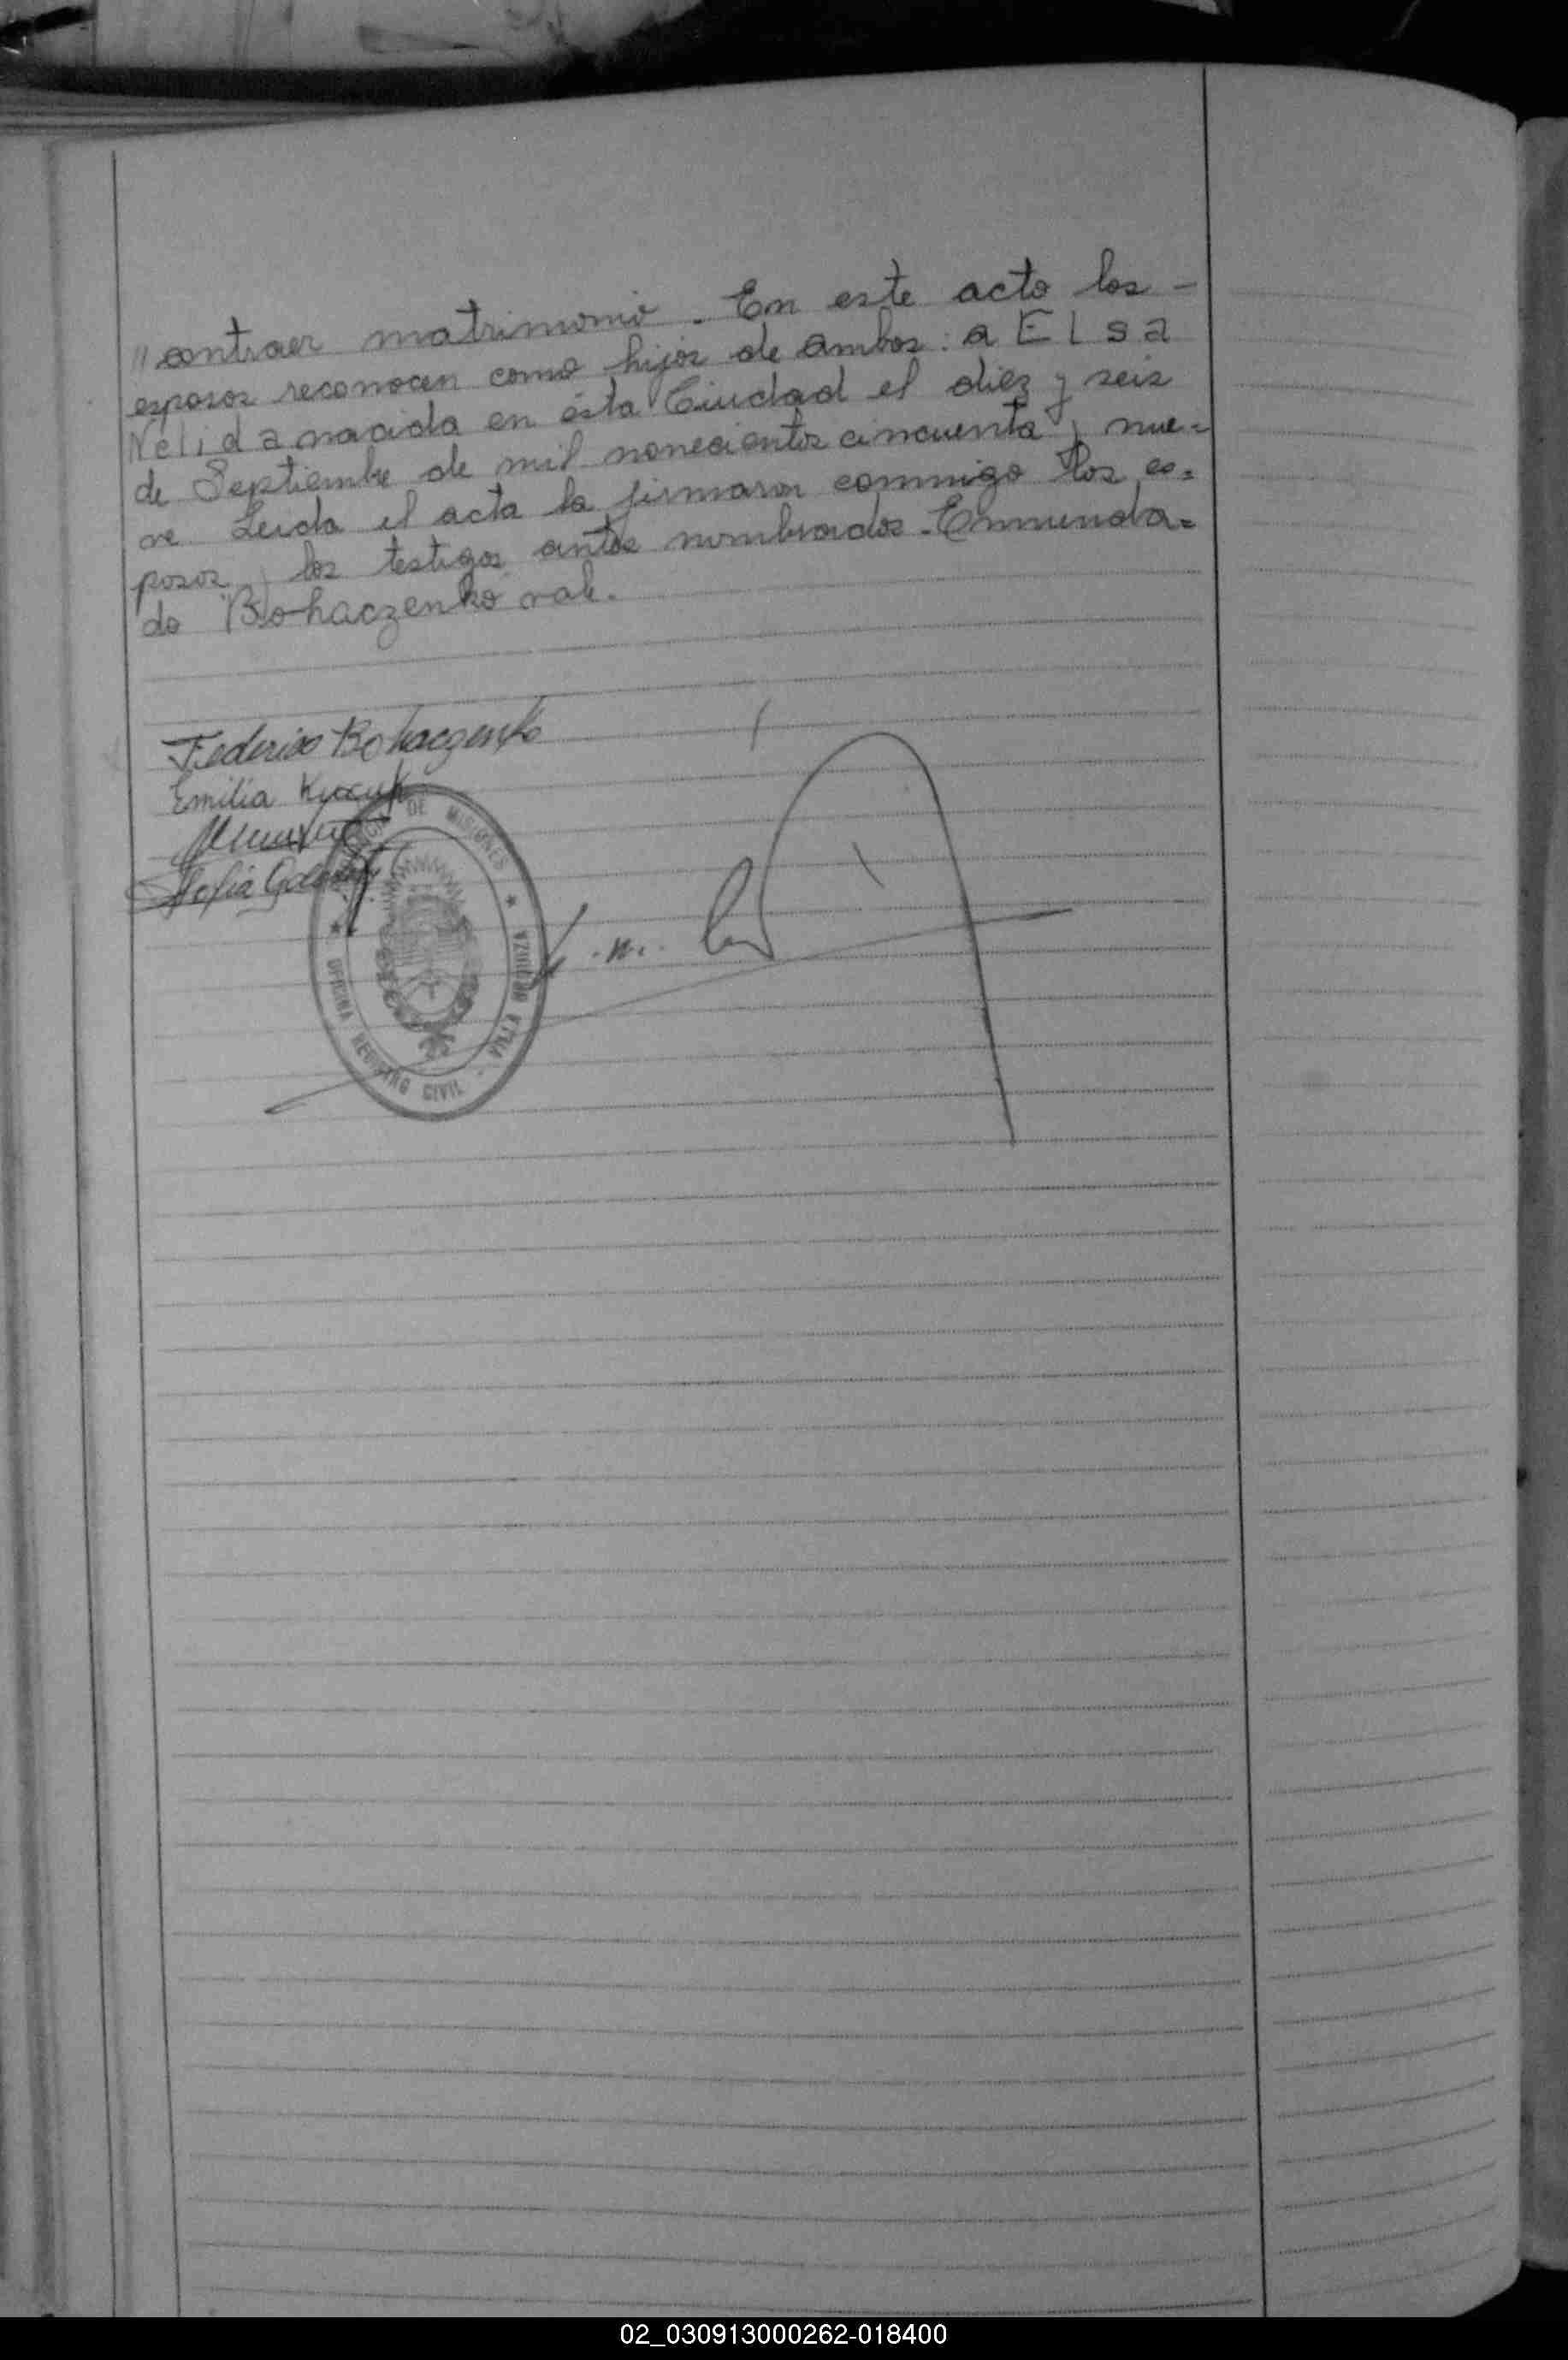 "contraer matrimonio. En este acto los -
esposos reconocen como hijos de ambos: a Elsa
Nelida nacida en ésta Ciudad el diez y seis
de Septiembre de mil nonecientos cincuenta y nue=
ve Leida el acta la firmaron conmigo los es=
posos y los testigos antes nombrados. Enmenda=
do "Bohaczenko" vale.
Federico Bohaczenko
Emilia
Sofia
DE MISIONES
OFICINA REGISTRO CIVIL -
02_030913000262-018400